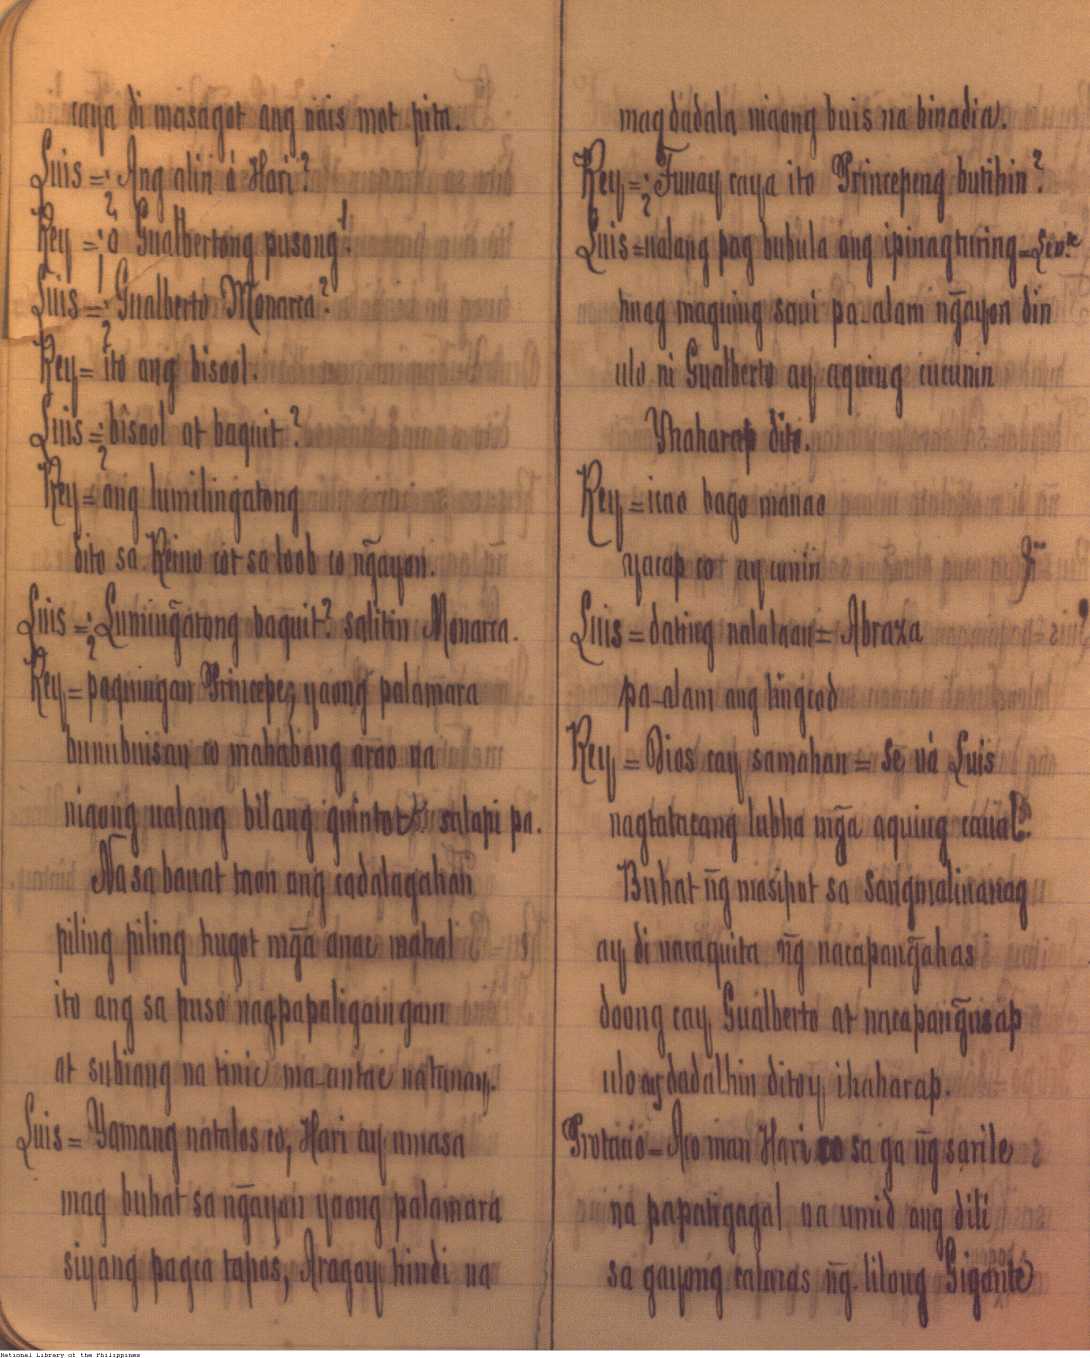 caya di masagot ang nais mot pita.
Luis =¿ Ang alin o Hari?
Rey =¡ o Gualbertong pusong!.
Luis =¿ Gualberto Monarca?
Rey = ito ang bisool.
Luis =¿ bisool at baquit?
Rey = ang lumilingatong
dito sa Reino cot sa loob co n͠gayon.
Luis =¿ Lumin͠gatong baquit? salitin Monarca.
Rey = paquingan Principe; yaong palamara
bumubuisan co mahabang arao na
niaong ualang bilang guintot salapi pa.
Na sa bauat taon ang cadalagahan
piling piling hugot mg̃a anac mahal
ito ang sa puso nagpapaligaingam
at subiang na tinic ma-antac natunay.
Luis = Yamang natalos co, Hari ay umasa
mag buhat sa n͠gayon yaong palamara
siyang pagca tapos, Aragoy hindi na
mag dadala niaong buis na binadia.
Rey =¿ Tunay caya ito Principeng butihin?
Luis = ualang pag bubula ang ipinagturing =
huag maguing saui pa-alam n͠gayon din
ulo ni Gualberto ay aquing cucunin
Yhaharap dito.
Rey = icao bago manao
yacap co ay cunin
Luis = dating nalalaan = Abraza
pa-alam ang lingcod
Rey = Dios cay samahan = Se vá Luis
nagtatacang lubha mg̃a aquing caual
Buhat n͠g masipot sa sangmalinanag
ay di nacaquita n͠g nacapan͠gahas
doong cay Gualberto at nacapan͠gusap
ulo ay dadalhin ditoy ihaharap.
Protacio = Aco man Hari co sa ga n͠g sarile
na papatigagal na umid ang dili
sa gayong calacas n͠g lilong Gigante
National Library of the Philippines